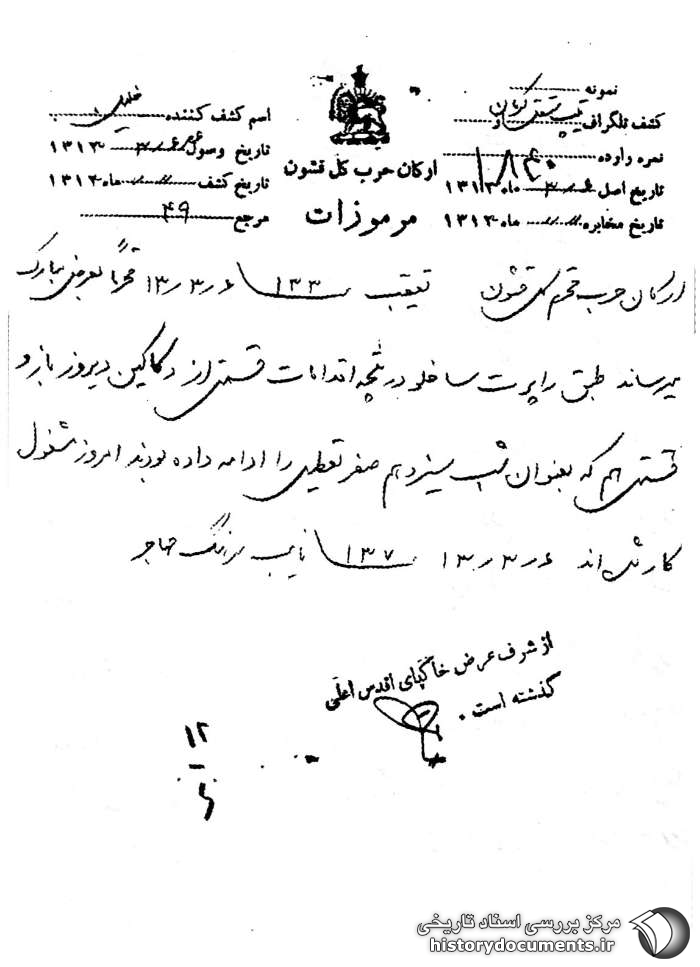 نمونه
کشف تلگراف از تیپ مستقل کرمان
نمره وارده ۱۸۴۰
تاریخ اصل ۶ ر ۳ ماه ۱۳۱۳
تاریخ مخابره ماه ۱۳۱۳
ارکان حرب کل قشون
مرموزات
اسم کشف کننده
تاریخ وصول ۶ ر ۳ ۱۳۱۳
تاریخ کشف ماه ۱۳۱۳
مرجع ۴۹
ارکان حرب محترم کل قشون تعقیب ۱۳۳ ۶ ر ۳ ر ۱۳ محترماً بعرض مبارک
میرساند طبق راپرت ساخلو در نتیجه اقدامات قسمتی از دکاکین دیروز باز و
قسمتی هم که بعنوان شب سیزدهم صفر تعطیل را ادامه داده بودند امروز مشغول
کار شده‌اند ۶ ر ۳ ر ۱۳ ۱۳۷ نایب سرهنگ
از شرف عرض خاکپای اقدس اعلی
گذشته است .
۱۲
۶
مرکز بررسی اسناد تاریخی
historydocuments.ir